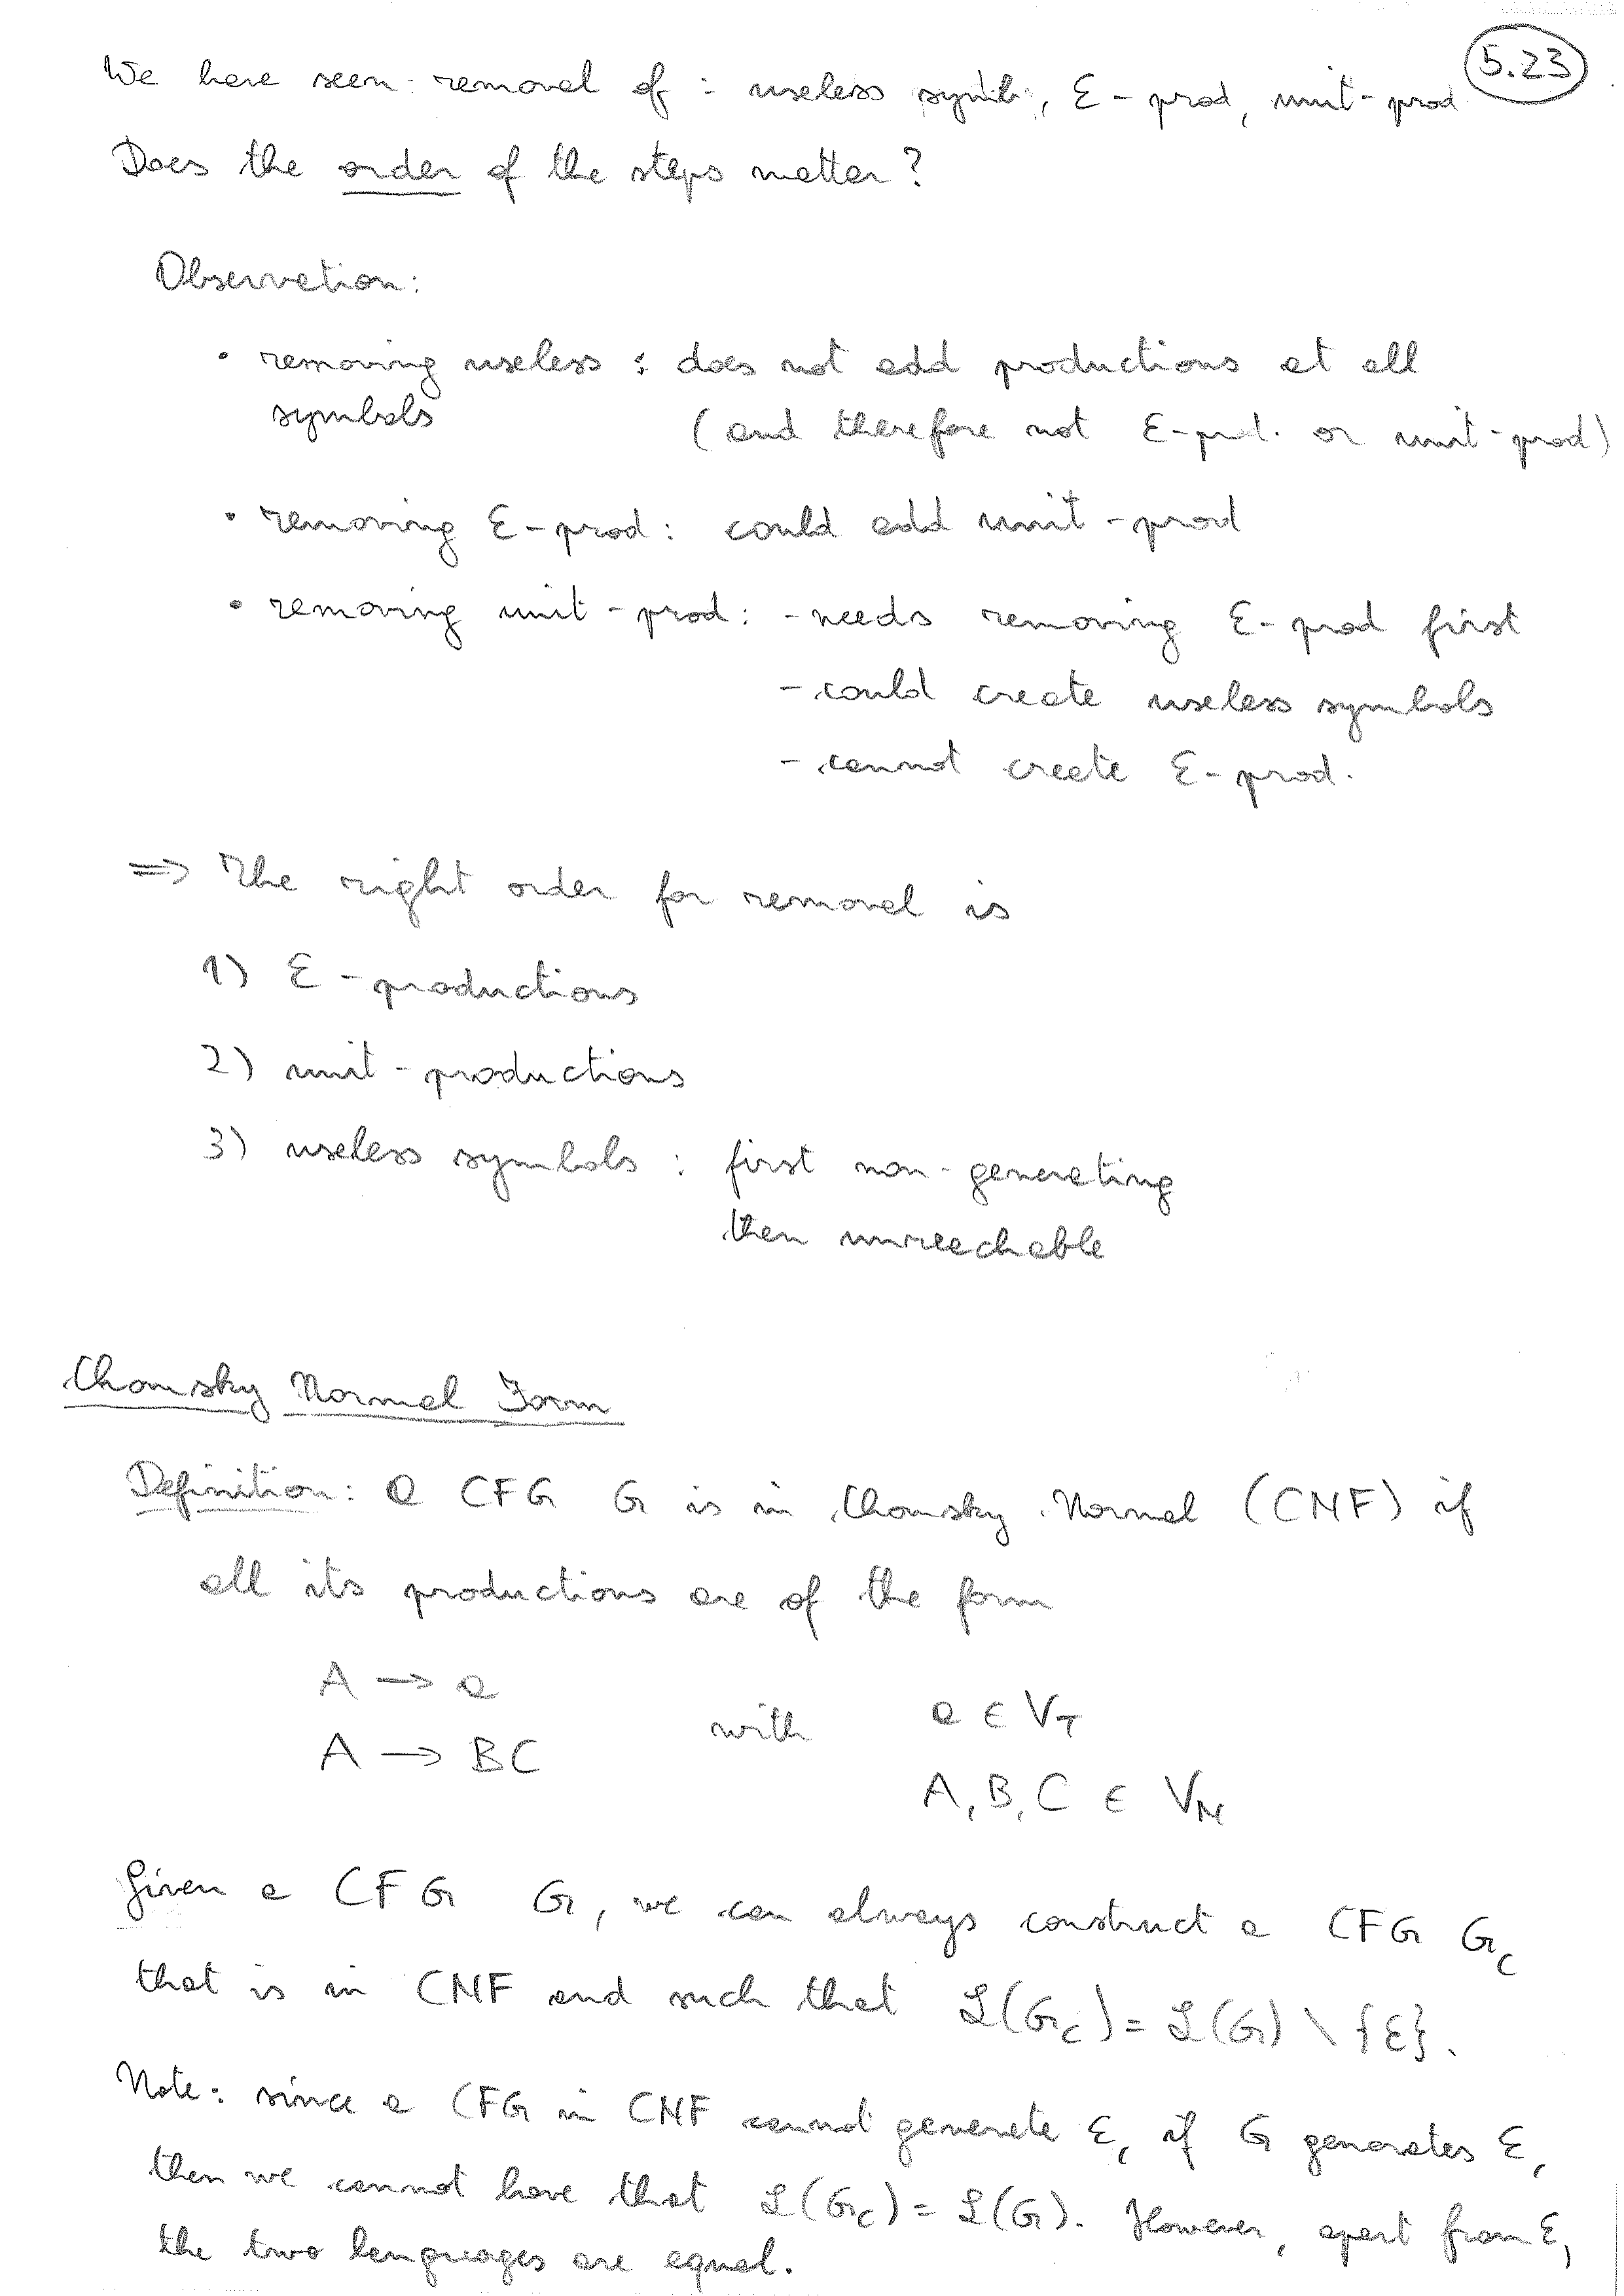 5.23
We have seen removal of : useless symb., ε-prod, unit-prod.
Does the order of the steps matter?
Observation:
• removing useless : does not add productions at all
symbols (and therefore not ε-prd. or unit-prod)
• removing ε-prod: could add unit-prod
• removing unit-prod: - needs removing ε-prod first
- could create useless symbols
- cannot create ε-prod.
=> The right order for removal is
1) ε-productions
2) unit-productions
3) useless symbols : first non-generating
then unreachable
Chomsky Normal Form
Definition: a CFG G is in Chomsky Normal (CNF) if
all its productions are of the form
A → a
with a ∈ V_T
A → BC
A, B, C ∈ V_N
Given a CFG G, we can always construct a CFG G_C
that is in CNF and such that L(G_C) = L(G) \ {ε}.
Note: since a CFG in CNF cannot generate ε, if G generates ε,
then we cannot have that L(G_C) = L(G). However, apart from ε,
the two languages are equal.